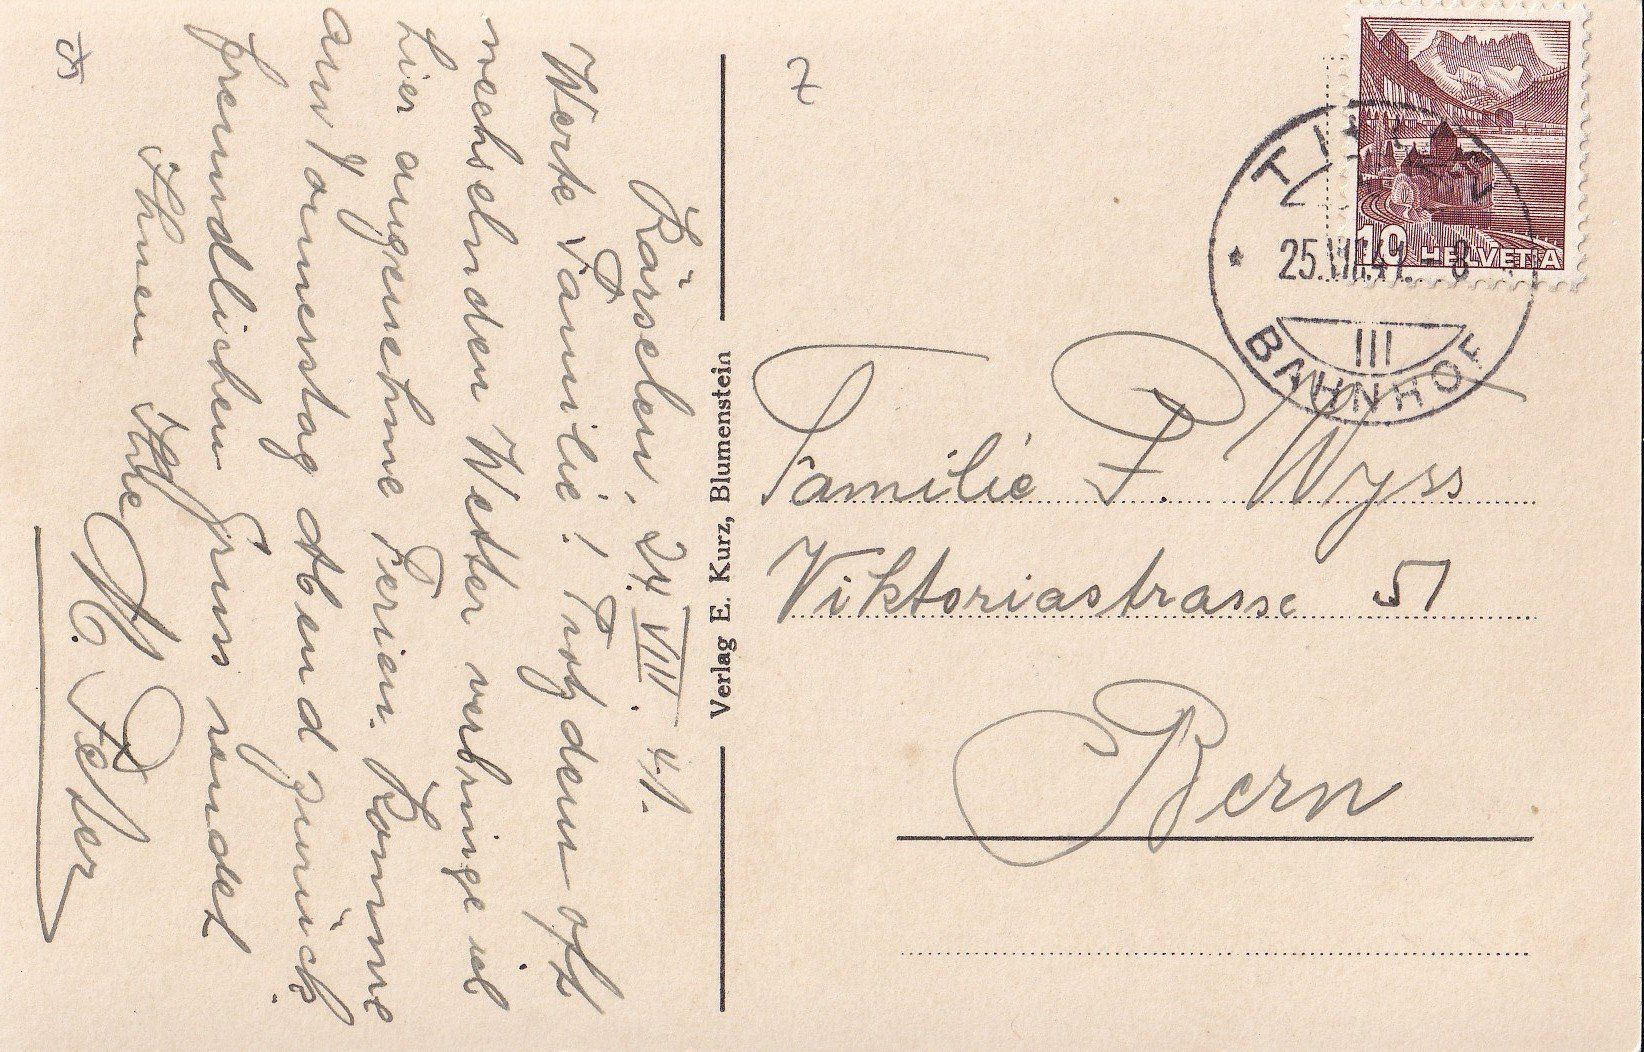 Kärselen, 24. VIII. 41.
Werte Familie! Trotz dem oft
wechselnden Wetter verbringe ich
hier angenehme Ferien. Komme
am Donnerstag Abend zurück.
freundlichen Gruss sendet
Ihnen Ihre
M. Peter
Verlag E. Kurz, Blumenstein
7
10 HELVETIA
25.VIII.41.-8
III
BAHNHOF
Familie F. Wyss
Viktoriastrasse 51
Bern